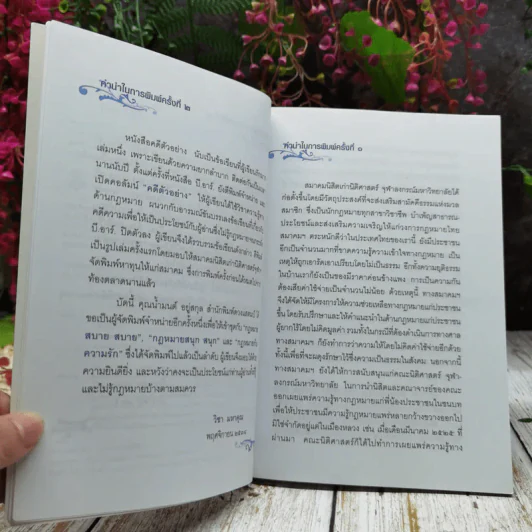 คำนำในการพิมพ์ครั้งที่ ๒
หนังสือคดีตัวอย่าง นับเป็นข้อเขียนที่ผู้เขียนรัก
เล่มหนึ่ง เพราะเขียนด้วยความยากลำบาก ติดต่อกันเป็นเวลา
นานนับปี ตั้งแต่ครั้งที่หนังสือ บี.อาร์. ยังตีพิมพ์จำหน่าย
เปิดคอลัมน์ "คดีตัวอย่าง" ให้ผู้เขียนได้ใช้วิชาความรู้
ด้านกฎหมาย ผนวกกับอารมณ์ขันบรรเลงข้อเขียนที่เกี่ยวกับ
คดีความเพื่อให้เป็นประโยชน์กับผู้อ่านซึ่งไม่รู้กฎหมาย
บี.อาร์. ปิดตัวลง ผู้เขียนจึงได้รวบรวมข้อเขียนดังกล่าว
เป็นรูปเล่มครั้งแรกโดยมอบให้สมาคมนิสิตเก่านิติศาสตร์จุฬาฯ
จัดพิมพ์หาทุนให้แก่สมาคม ซึ่งการพิมพ์ครั้งก่อนได้หมดไปจาก
ท้องตลาดนานแล้ว
บัดนี้ คุณน้ำมนต์ อยู่สกุล สำนักพิมพ์ดวงกมลสมัย
ขอเป็นผู้จัดพิมพ์จำหน่ายอีกครั้งหนึ่งเพื่อให้เข้าชุดกับ "กฎหมาย
สบาย สบาย", "กฎหมายสนุก สนุก" และ "กฎหมายกับ
ความรัก" ซึ่งได้จัดพิมพ์ไปแล้วเป็นลำดับ ผู้เขียนจึงมอบให้ด้วย
ความยินดียิ่ง และหวังว่าคงจะเป็นประโยชน์แก่ท่านผู้อ่านทั้งที่รู้
และไม่รู้กฎหมายบ้างตามสมควร
วิชา มหาคุณ
พฤศจิกายน ๒๕๓๘
คำนำในการพิมพ์ครั้งที่ ๑
สมาคมนิสิตเก่านิติศาสตร์ จุฬาลงกรณ์มหาวิทยาลัยได้
ก่อตั้งขึ้นโดยมีวัตถุประสงค์ที่จะส่งเสริมสามัคคีธรรมแห่งมวล
สมาชิก ซึ่งเป็นนักกฎหมายทุกสาขาวิชาชีพ บำเพ็ญสาธารณ-
ประโยชน์และส่งเสริมความเจริญให้แก่วงการกฎหมายไทย
สมาคมฯ ตระหนักดีว่าในประเทศไทยของเรานี้ ยังมีประชาชน
อีกเป็นจำนวนมากที่ขาดความรู้ความเข้าใจทางกฎหมาย เป็น
เหตุให้ถูกเอารัดเอาเปรียบโดยไม่เป็นธรรม อีกทั้งความยุติธรรม
ในบ้านเราก็ยังเป็นของมีราคาค่อนข้างแพง การเป็นความกัน
ต้องเสียค่าใช้จ่ายเป็นจำนวนไม่น้อย ด้วยเหตุนี้ ทางสมาคมฯ
จึงได้จัดให้มีโครงการให้ความช่วยเหลือทางกฎหมายแก่ประชาชน
โดยรับปรึกษาและให้คำแนะนำในด้านกฎหมายแก่ประชาชน
ผู้ยากไร้โดยไม่คิดมูลค่า รวมทั้งในกรณีที่ต้องดำเนินการทางศาล
ทางสมาคมฯ ก็ยังทำการว่าความให้โดยไม่คิดค่าใช้จ่ายอีกด้วย
ทั้งนี้เพื่อที่จะผดุงรักษาไว้ซึ่งความเป็นธรรมในสังคม นอกจากนี้
ทางสมาคมฯ ยังได้ให้การสนับสนุนแก่คณะนิติศาสตร์ จุฬา-
ลงกรณ์มหาวิทยาลัย ในการนำนิสิตและคณาจารย์ของคณะ
ออกเผยแพร่ความรู้ทางกฎหมายแก่พี่น้องประชาชนในชนบท
เพื่อให้ประชาชนมีความรู้กฎหมายแพร่หลายกว้างขวางออกไป
มิใช่จำกัดอยู่แต่ในเมืองหลวง เช่น เมื่อเดือนมีนาคม ๒๕๒๕ ที่
ผ่านมา คณะนิติศาสตร์ก็ได้ไปทำการเผยแพร่ความรู้ทาง